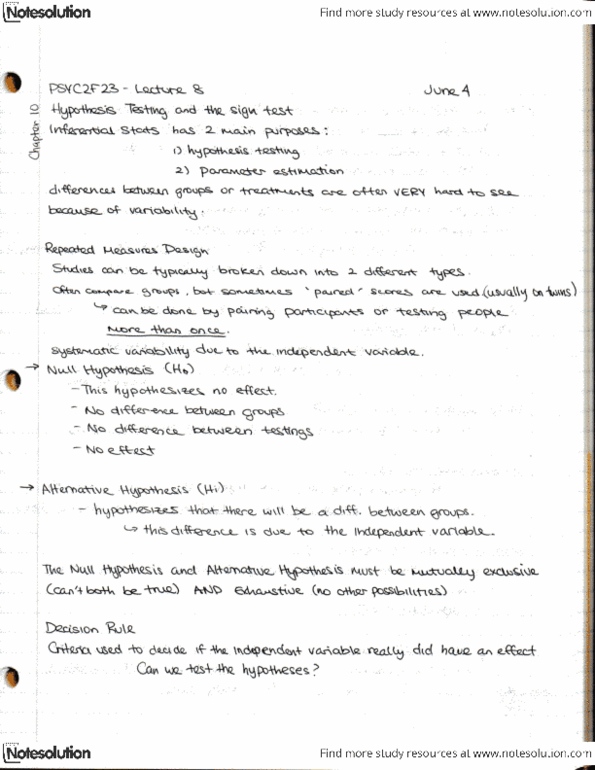 Notesolution
Find more study resources at www.notesolution.com
PSYC2F23 - Lecture 8
June 4
Chapter 10
Hypothesis Testing and the sign test
Inferential Stats has 2 main purposes:
1) hypothesis testing
2) parameter estimation
differences between groups or treatments are often VERY hard to see
because of variability.
Repeated Measures Design
Studies can be typically broken down into 2 different types.
Often compare groups, but sometimes "paired" scores are used (usually on twins)
↳ can be done by pairing participants or testing people
more than once.
systematic variability due to the independent variable.
→ Null Hypothesis (H₀)
- This hypothesizes no effect.
- No difference between groups
- No difference between testings
- No effect
→ Alternative Hypothesis (H₁)
- hypothesizes that there will be a diff. between groups.
↳ this difference is due to the independent variable.
The Null Hypothesis and Alternative Hypothesis must be mutually exclusive
(can't both be true) AND Exhaustive (no other possibilities)
Decision Rule
Criteria used to decide if the independent variable really did have an effect
Can we test the hypotheses?
Notesolution
Find more study resources at www.notesolution.com